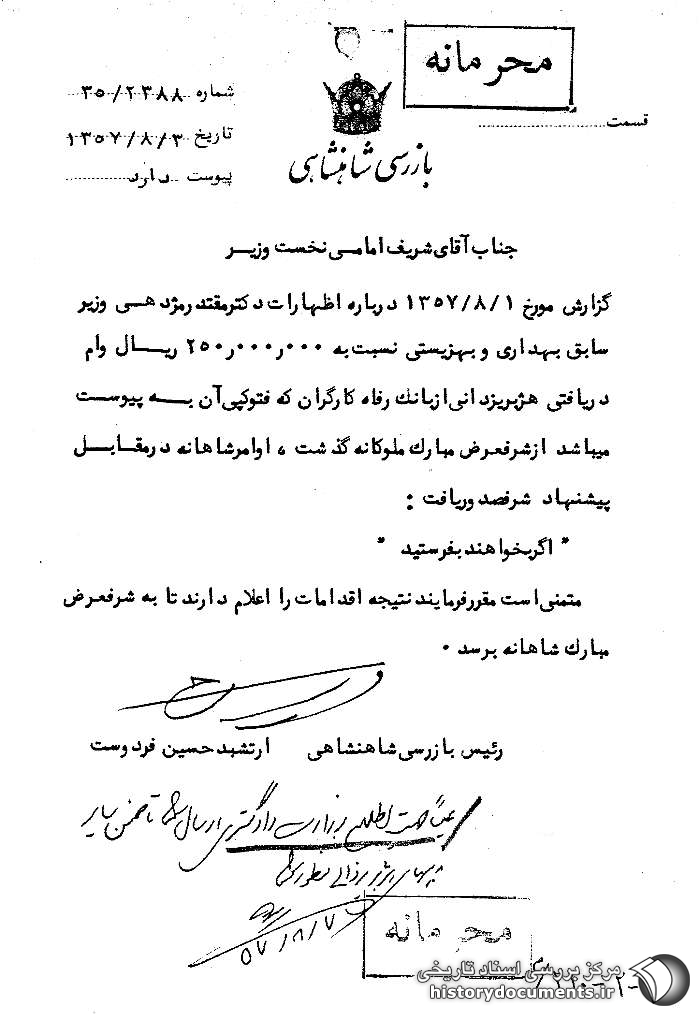 محرمانه
شماره ۳۵/۲۳۸۸
قسمت
تاریخ ۱۳۵۷/۸/۳
بازرسی شاهنشاهی
پیوست دارد
جناب آقای شریف امامی نخست وزیر
گزارش مورخ ۱۳۵۷/۸/۱ درباره اظهارات دکتر مقتدر مژدهی وزیر
سابق بهداری و بهزیستی نسبت به ۲۵۰٫۰۰۰٫۰۰۰ ریال وام
دریافتی هژبریزدانی از بانک رفاه کارگران که فتوکپی آن به پیوست
میباشد از شرفعرض مبارک ملوکانه گذشت ، اوامر شاهانه در مقابل
پیشنهاد شرفصدور یافت :
" اگر بخواهند بفرستید "
متمنی است مقرر فرمایند نتیجه اقدامات را اعلام دارند تا به شرفعرض
مبارک شاهانه برسد .
رئیس بازرسی شاهنشاهی ارتشبد حسین فردوست
عیناً جهت اطلاع وزارت دادگستری ارسال شود تا ضمن سایر
هژبر یزدانی
۵۷/۸/۷
محرمانه
مرکز بررسی اسناد تاریخی
historydocuments.ir